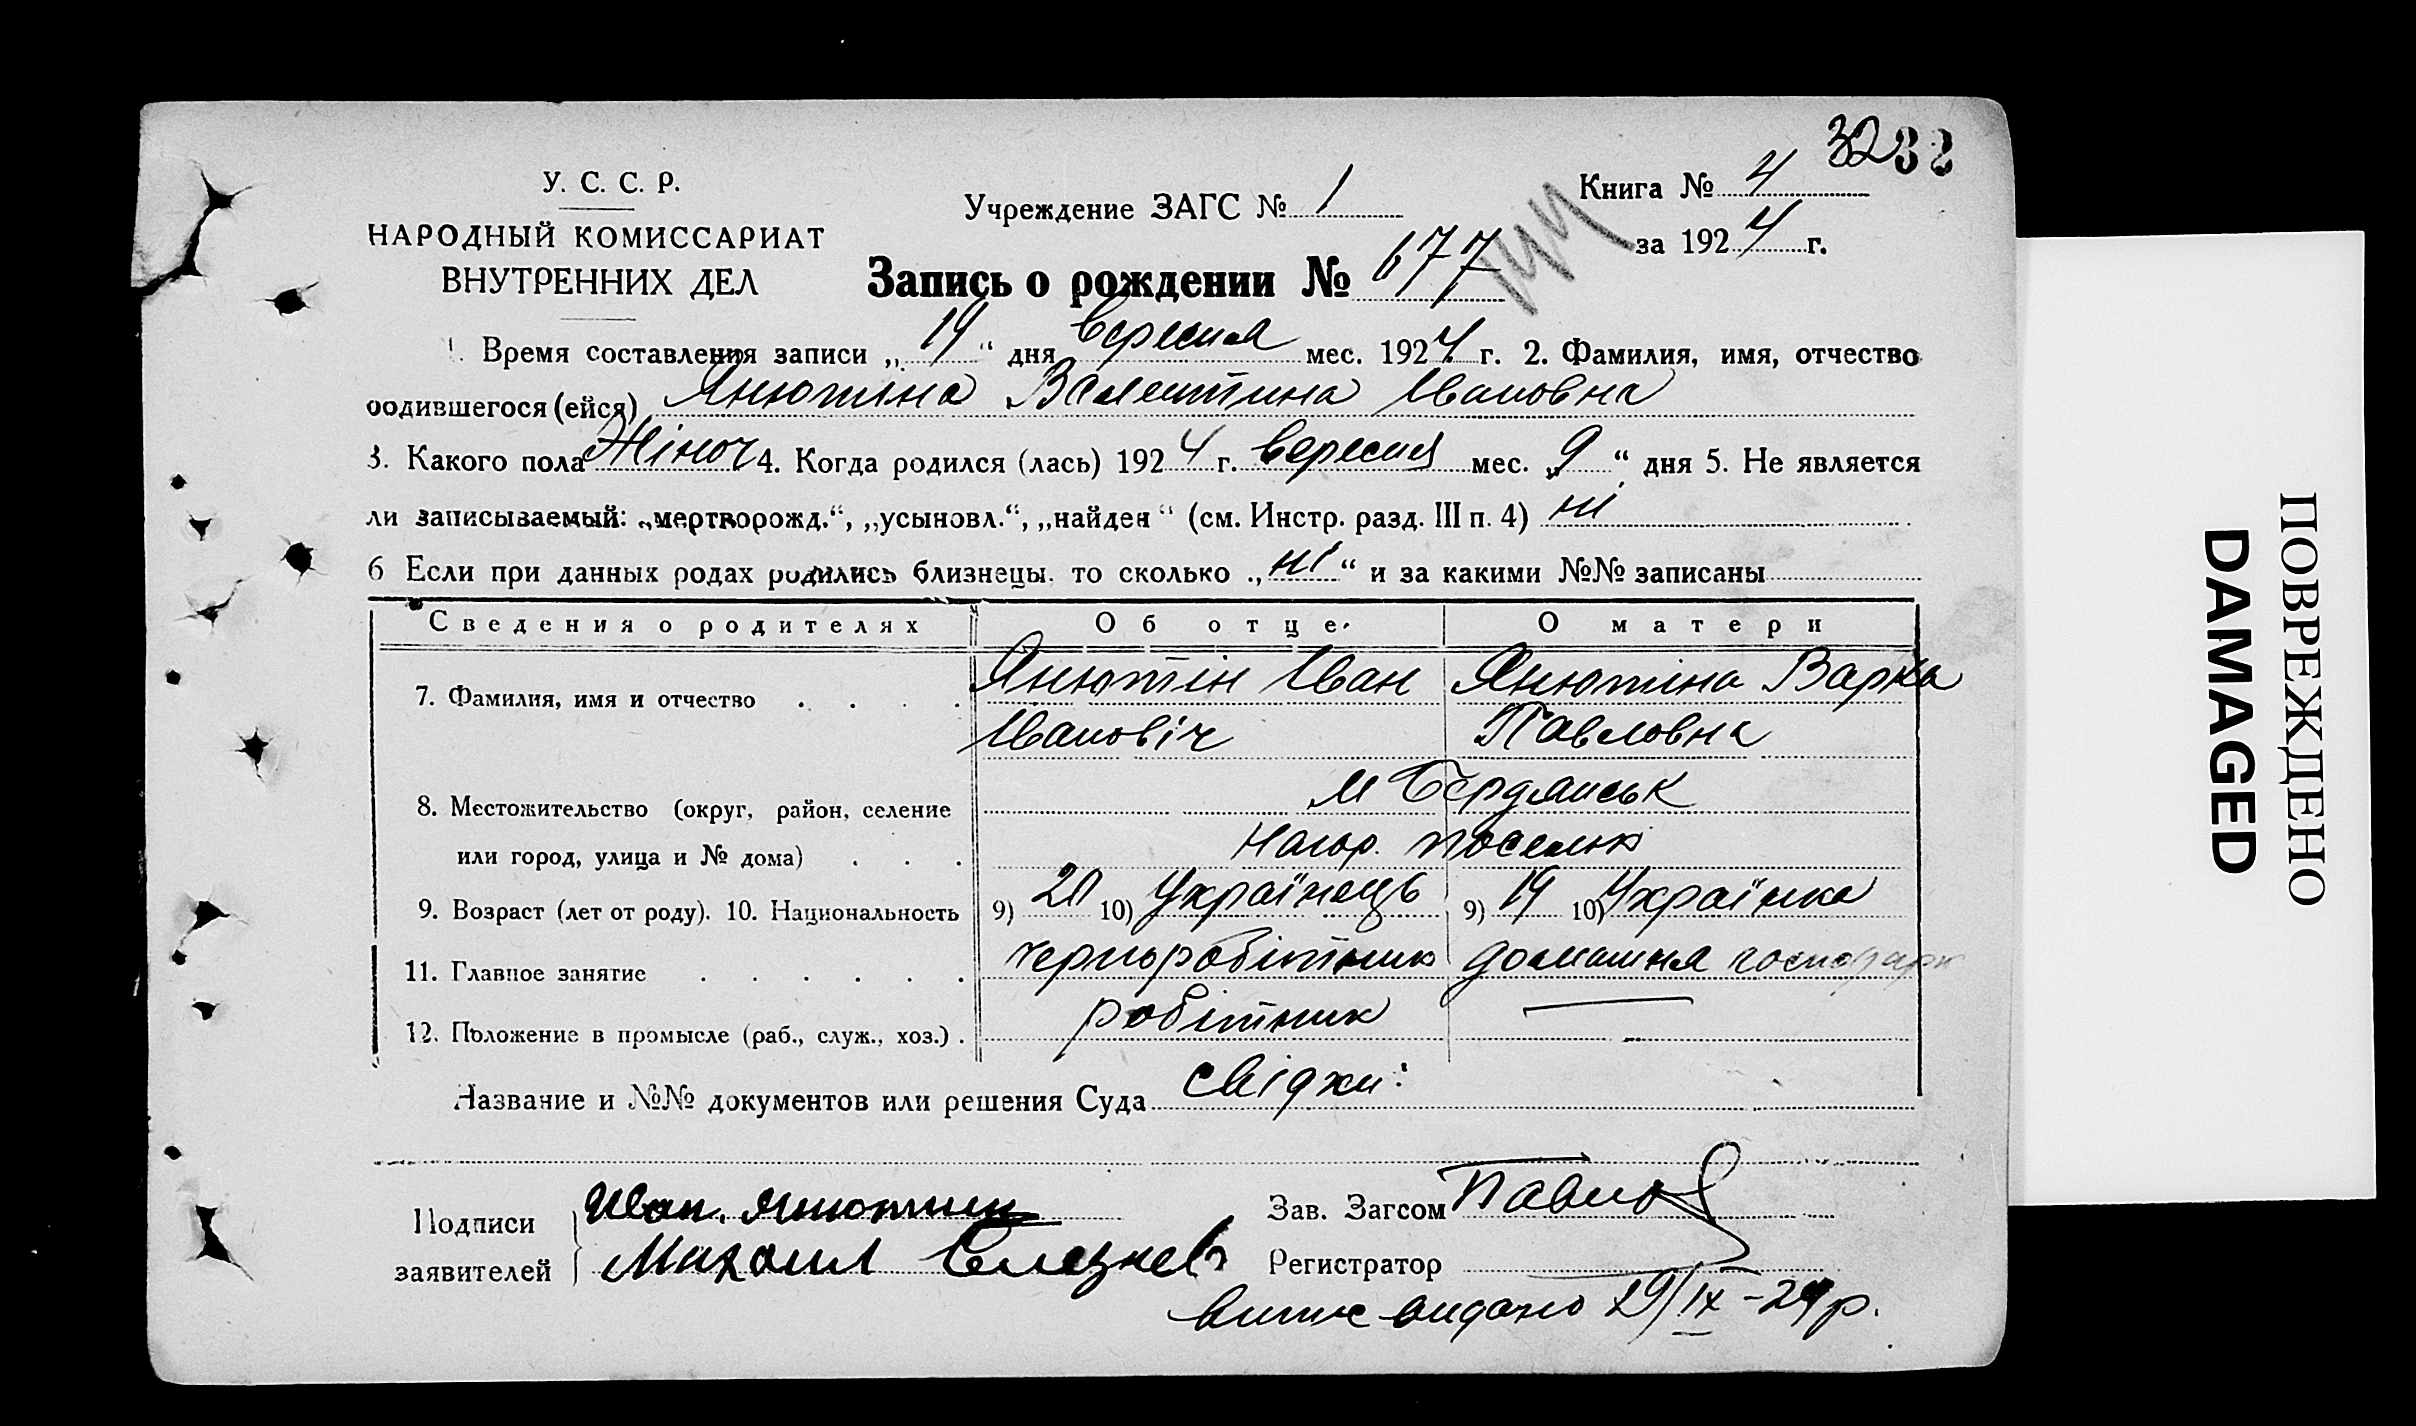 3232
У. С. С. Р.
Учреждение ЗАГС № 1
Книга № 4
НАРОДНЫЙ КОМИССАРИАТ
за 1924 г.
ВНУТРЕННИХ ДЕЛ
Запись о рождении № 677
1. Время составления записи „19“ дня вересня мес. 1924 г. 2. Фамилия, имя, отчество
родившегося (ейся) Янютіна Валентина Івановна
3. Какого пола Жіноч 4. Когда родился (лась) 1924 г. вересня мес. „9“ дня 5. Не является
ли записываемый: „мертворожд.“, „усыновл.“, „найден“ (см. Инстр. разд. III п. 4) ні
6 Если при данных родах родились близнецы, то сколько „ні“ и за какими №№ записаны
Сведения о родителях Об отце. О матери
7. Фамилия, имя и отчество . . . . Янютін Іван Янютіна Варка
Івановіч Павловна
8. Местожительство (округ, район, селение м Бердянськ
или город, улица и № дома) . . . Нагор. поселок
9. Возраст (лет от роду). 10. Национальность 9) 20 10) Українець 9) 19 10) Українка
11. Главное занятие . . . . . . чернороботник домашня господарк
12. Положение в промысле (раб., служ., хоз.) . робітник —
Название и №№ документов или решения Суда свідки:
Подписи Иван. Янютин Зав. Загсом Павлов
заявителей Михаил Селезнев Регистратор
витяг видано 29/IX-24 р.
ПОВРЕЖДЕНО
DAMAGED